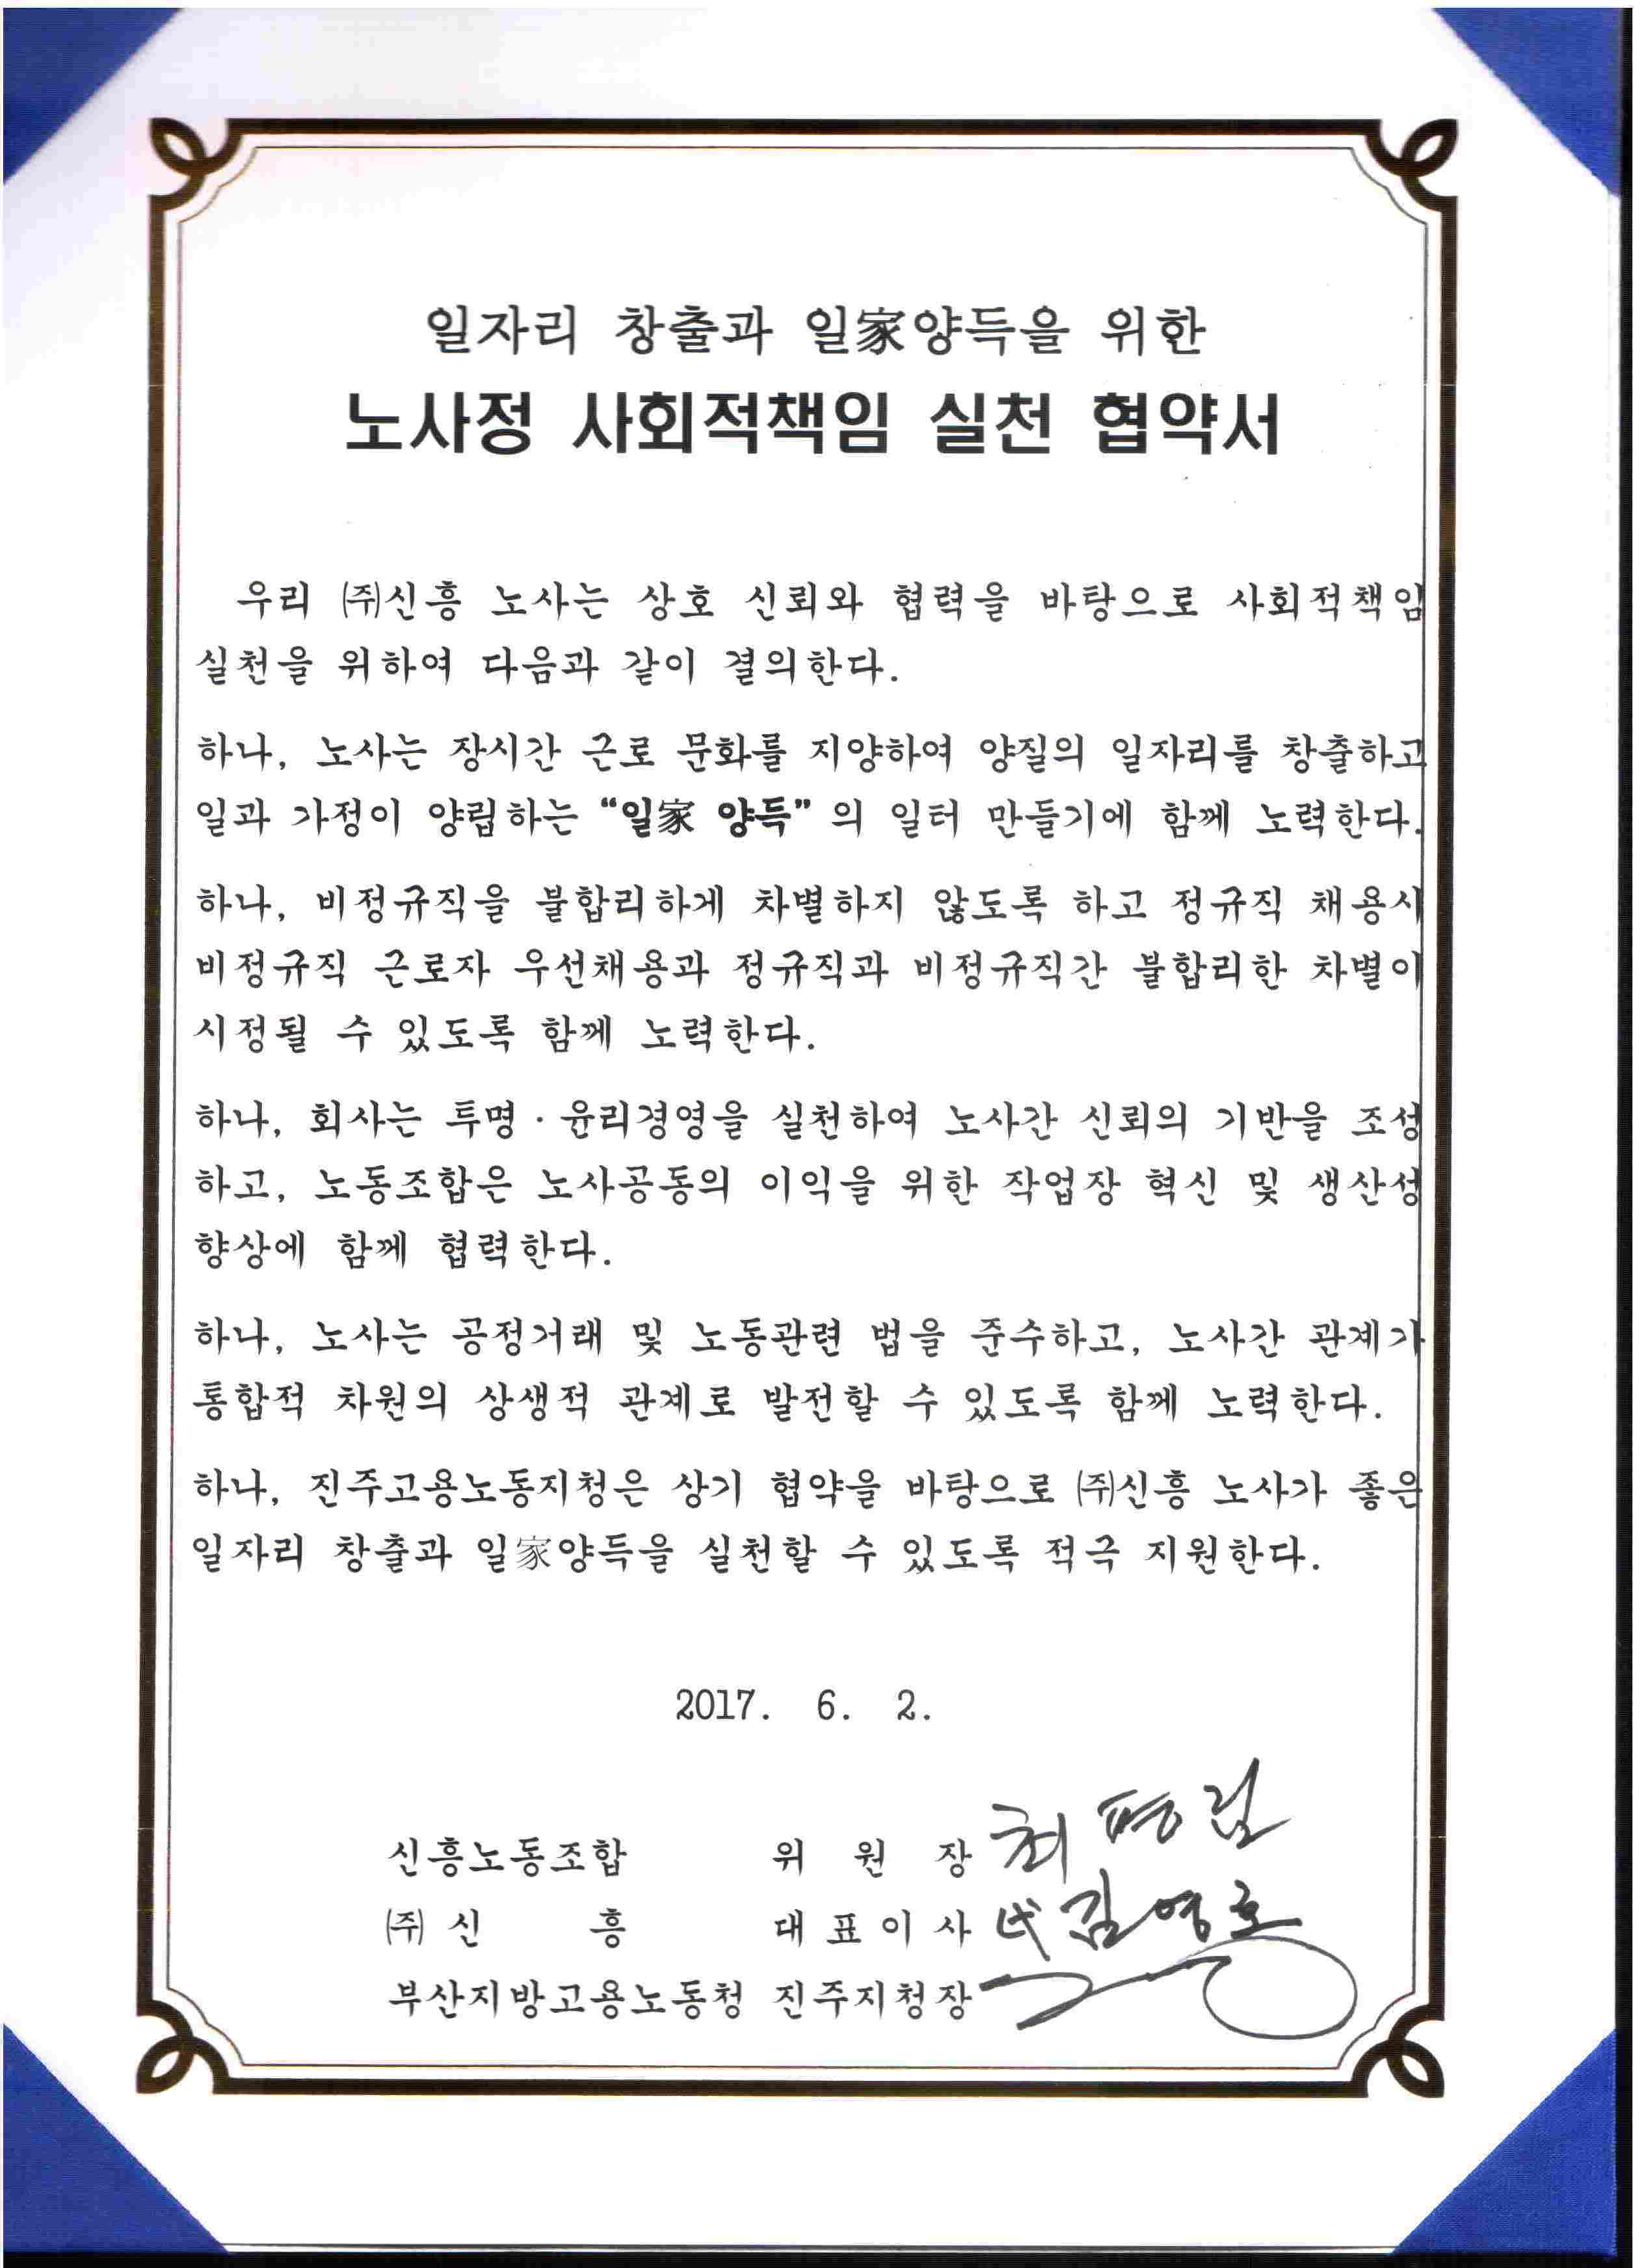 일자리 창출과 일家양득을 위한
노사정 사회적책임 실천 협약서
우리 ㈜신흥 노사는 상호 신뢰와 협력을 바탕으로 사회적책임
실천을 위하여 다음과 같이 결의한다.
하나, 노사는 장시간 근로 문화를 지양하여 양질의 일자리를 창출하고
일과 가정이 양립하는 “일家 양득” 의 일터 만들기에 함께 노력한다.
하나, 비정규직을 불합리하게 차별하지 않도록 하고 정규직 채용시
비정규직 근로자 우선채용과 정규직과 비정규직간 불합리한 차별이
시정될 수 있도록 함께 노력한다.
하나, 회사는 투명·윤리경영을 실천하여 노사간 신뢰의 기반을 조성
하고, 노동조합은 노사공동의 이익을 위한 작업장 혁신 및 생산성
향상에 함께 협력한다.
하나, 노사는 공정거래 및 노동관련 법을 준수하고, 노사간 관계가
통합적 차원의 상생적 관계로 발전할 수 있도록 함께 노력한다.
하나, 진주고용노동지청은 상기 협약을 바탕으로 ㈜신흥 노사가 좋은
일자리 창출과 일家양득을 실천할 수 있도록 적극 지원한다.
2017. 6. 2.
신흥노동조합 위 원 장
㈜ 신 흥 대 표 이 사 代 김영호
부산지방고용노동청 진주지청장